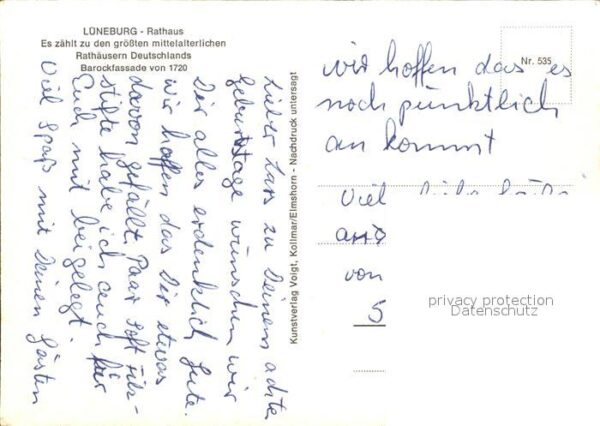 LÜNEBURG - Rathaus
Es zählt zu den größten mittelalterlichen
Rathäusern Deutschlands
Barockfassade von 1720
Lieber Lars zu Deinem achten
Geburtstage wünschen wir
Dir alles erdenklich Gute.
wir hoffen das Dir etwas
davon gefällt. Paar Soft Filz-
stifte habe ich auch für
Euch mit beigelegt.
Viel Spaß mit Deinen Gästen
Kunstverlag Voigt, Kollmar/Elmshorn - Nachdruck untersagt
Nr. 535
wir hoffen das es
noch pünktlich
an kommt
Viel liebe
von
5
privacy protection
Datenschutz